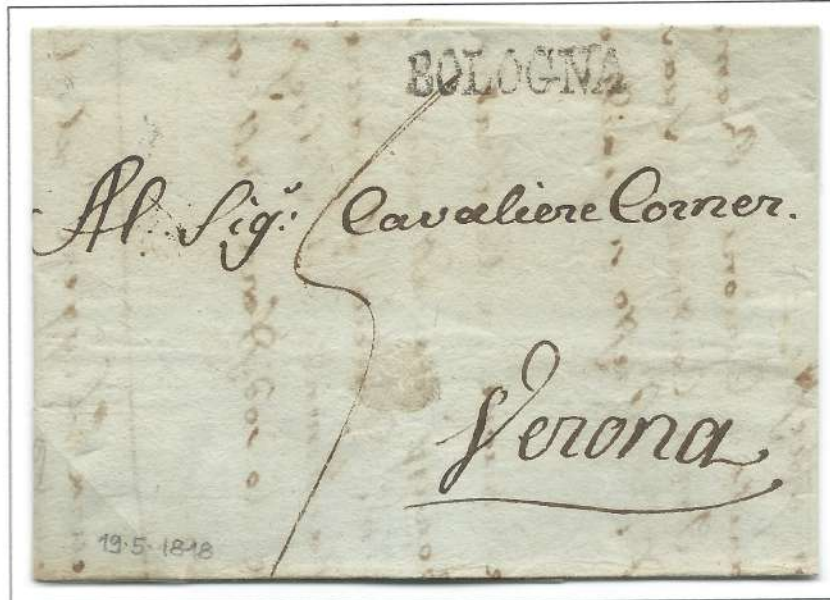 BOLOGNA
Al Sig.r Cavaliere Corner.
5
Verona
19·5·1818